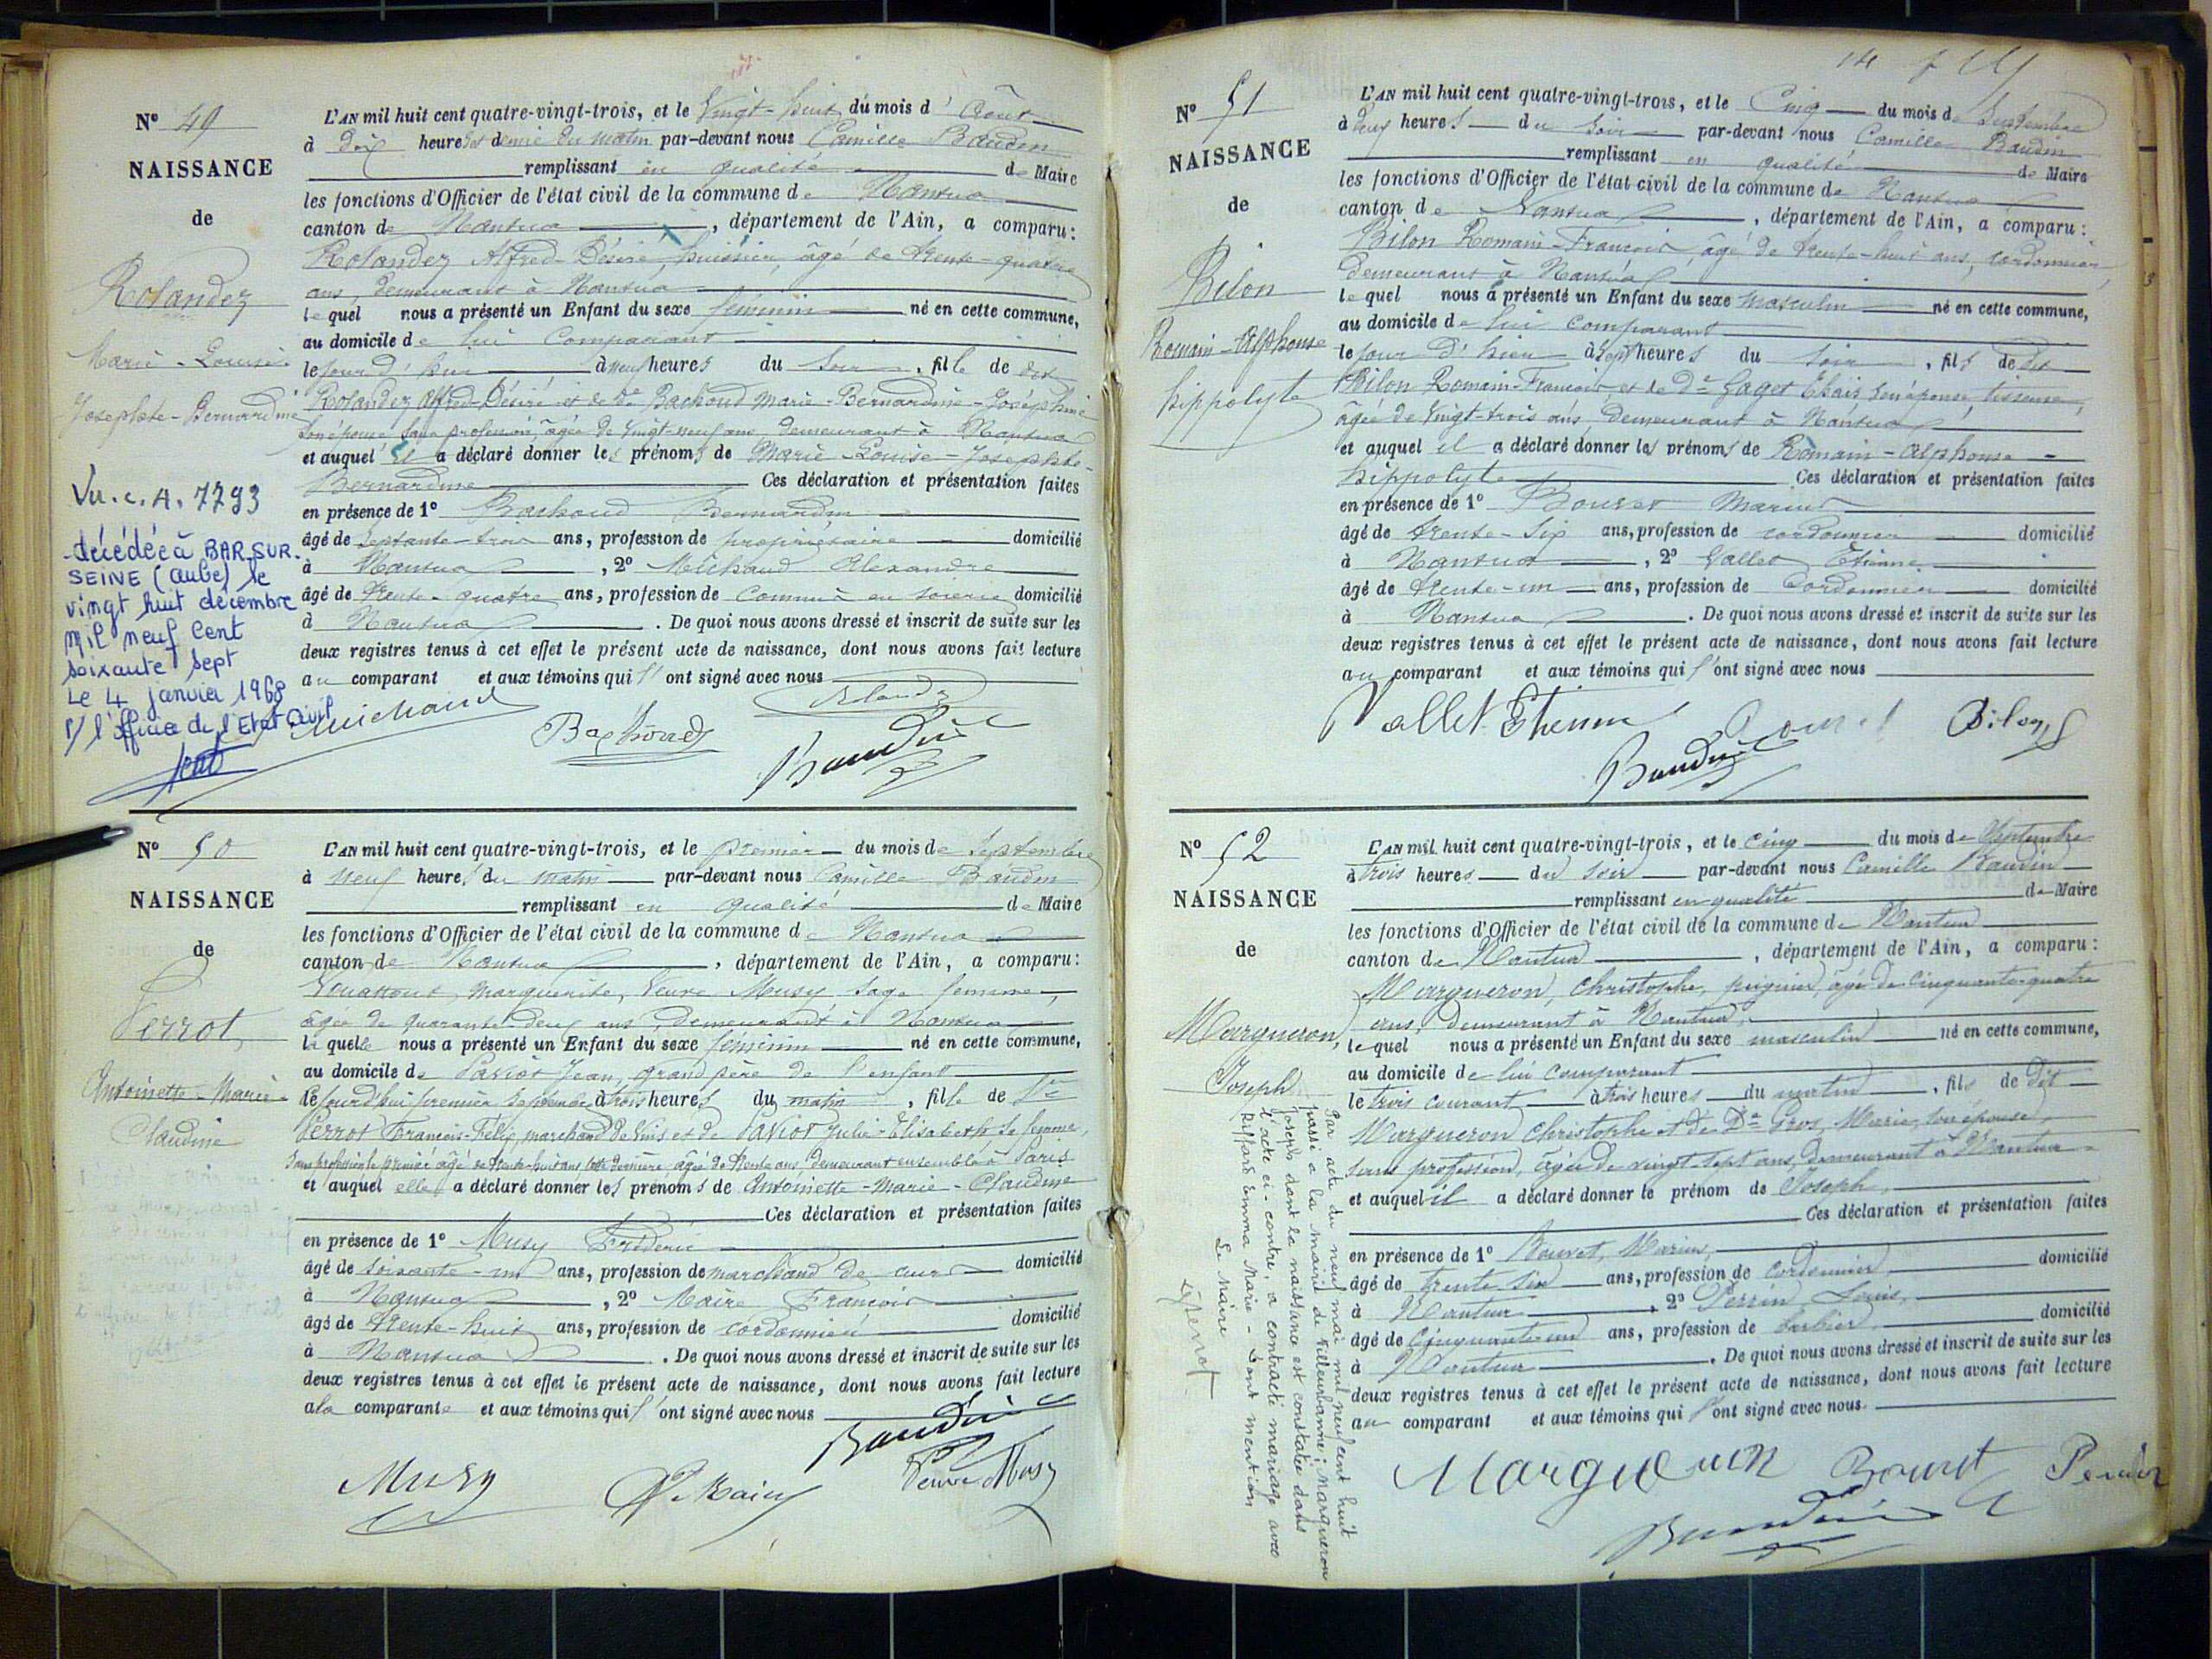 N° 49
NAISSANCE
de
Rolandez
Marie-Louise-
Josephte-Bernardine
Vu. c. A. 7793
décédée à BAR SUR
SEINE (Aube) le
vingt huit décembre
mil neuf cent
soixante sept
Le 4 janvier 1968
P/ l'officier de l'Etat Civil
L'AN mil huit cent quatre-vingt-trois, et le Vingt-huit du mois d'Août
à dix heures et demie du matin par-devant nous Camille Baudin
remplissant en qualité de Maire
les fonctions d'Officier de l'état civil de la commune de Nantua
canton de Nantua, département de l'Ain, a comparu :
Rolandez Alfred-Désiré, huissier, âgé de trente-quatre
ans, demeurant à Nantua
lequel nous a présenté un Enfant du sexe féminin né en cette commune,
au domicile de lui comparant
le jour d'hier à neuf heures du soir, fille de dit
Rolandez Alfred-Désiré et de De Bachoud Marie-Bernardine-Joséphine
son épouse, sans profession, âgée de vingt-neuf ans, demeurant à Nantua
et auquel il a déclaré donner les prénoms de Marie-Louise-Josephte-
Bernardine Ces déclaration et présentation faites
en présence de 1° Bachoud Bernardin
âgé de septante-trois ans, profession de propriétaire domicilié
à Nantua, 2° Michaud Alexandre
âgé de trente-quatre ans, profession de Commis en soierie domicilié
à Nantua. De quoi nous avons dressé et inscrit de suite sur les
deux registres tenus à cet effet le présent acte de naissance, dont nous avons fait lecture
au comparant et aux témoins qui l'ont signé avec nous
Michaud Bachoud Rolandez
Baudin
N° 50
NAISSANCE
de
Perrot
Antoinette-Marie-
Claudine
L'AN mil huit cent quatre-vingt-trois, et le premier du mois de Septembre
à neuf heures du matin par-devant nous Camille Baudin
remplissant en qualité de Maire
les fonctions d'Officier de l'état civil de la commune de Nantua
canton de Nantua, département de l'Ain, a comparu :
Marguerite, Veuve Musy, sage femme,
âgée de quarante-deux ans, demeurant à Nantua
laquelle nous a présenté un Enfant du sexe féminin né en cette commune,
au domicile de Paviot Jean, grand père de l'enfant
le jourd'hui premier Septembre à trois heures du matin, fille de Sr
Perrot François-Félix, marchand de Vins et de Paviot Julie-Elisabeth, sa femme,
sans profession, le premier âgé de trente-huit ans cette dernière âgée de trente ans, demeurant ensemble à Paris
et auquel elle a déclaré donner les prénoms de Antoinette-Marie-Claudine
Ces déclaration et présentation faites
en présence de 1° Musy Frédéric
âgé de soixante-un ans, profession de marchand de cuirs domicilié
à Nantua, 2° Maire François
âgé de trente-huit ans, profession de cordonnier domicilié
à Nantua. De quoi nous avons dressé et inscrit de suite sur les
deux registres tenus à cet effet le présent acte de naissance, dont nous avons fait lecture
a la comparante et aux témoins qui l'ont signé avec nous
Baudin
Musy Veuve Musy
14
N° 51
NAISSANCE
de
Bilon
Romain-Alphonse
hippolyte
L'AN mil huit cent quatre-vingt-trois, et le Cinq du mois de Septembre
à deux heures du soir par-devant nous Camille Baudin
remplissant en qualité de Maire
les fonctions d'Officier de l'état civil de la commune de Nantua
canton de Nantua, département de l'Ain, a comparu :
Bilon Romain-François, âgé de trente-huit ans, cordonnier,
demeurant à Nantua
lequel nous a présenté un Enfant du sexe masculin né en cette commune,
au domicile de lui comparant
le jour d'hier à sept heures du soir, fils de dit
Bilon Romain-François, et de De Gaget Thaïs son épouse, tisseuse,
âgée de vingt-trois ans, demeurant à Nantua
et auquel il a déclaré donner les prénoms de Romain-Alphonse-
hippolyte Ces déclaration et présentation faites
en présence de 1° Bouret Marius
âgé de trente-six ans, profession de cordonnier domicilié
à Nantua, 2° Vallet Etienne
âgé de trente-un ans, profession de Cordonnier domicilié
à Nantua. De quoi nous avons dressé et inscrit de suite sur les
deux registres tenus à cet effet le présent acte de naissance, dont nous avons fait lecture
au comparant et aux témoins qui l'ont signé avec nous
Vallet Etienne Bouret Bilon
Baudin
N° 52
NAISSANCE
de
Margueron,
Joseph
L'AN mil huit cent quatre-vingt-trois, et le cinq du mois de Septembre
à trois heures du soir par-devant nous Camille Baudin
remplissant en qualité de Maire
les fonctions d'Officier de l'état civil de la commune de Nantua
canton de Nantua, département de l'Ain, a comparu :
Margueron, Christophe, peignier, âgé de cinquante-quatre
ans, demeurant à Nantua,
lequel nous a présenté un Enfant du sexe masculin né en cette commune,
au domicile de lui comparant
le trois courant à trois heures du matin, fils de dit
Margueron Christophe et de De Gros, Marie, son épouse,
sans profession, âgée de vingt sept ans, demeurant à Nantua
et auquel il a déclaré donner le prénom de Joseph,
Ces déclaration et présentation faites
en présence de 1° Bouret, Marius,
âgé de trente six ans, profession de cordonnier, domicilié
à Nantua, 2° Perrin Louis,
âgé de cinquante un ans, profession de barbier, domicilié
à Nantua. De quoi nous avons dressé et inscrit de suite sur les
deux registres tenus à cet effet le présent acte de naissance, dont nous avons fait lecture
au comparant et aux témoins qui l'ont signé avec nous.
Margueron Bouret Perrin
Baudin
Par acte du neuf mai mil neuf cent huit
passé à la Mairie de Villeurbanne, Margueron
Joseph dont la naissance est constatée dans
l'acte ci-contre, a contracté mariage avec
Riffard Emma Marie - Dont mention
Le Maire